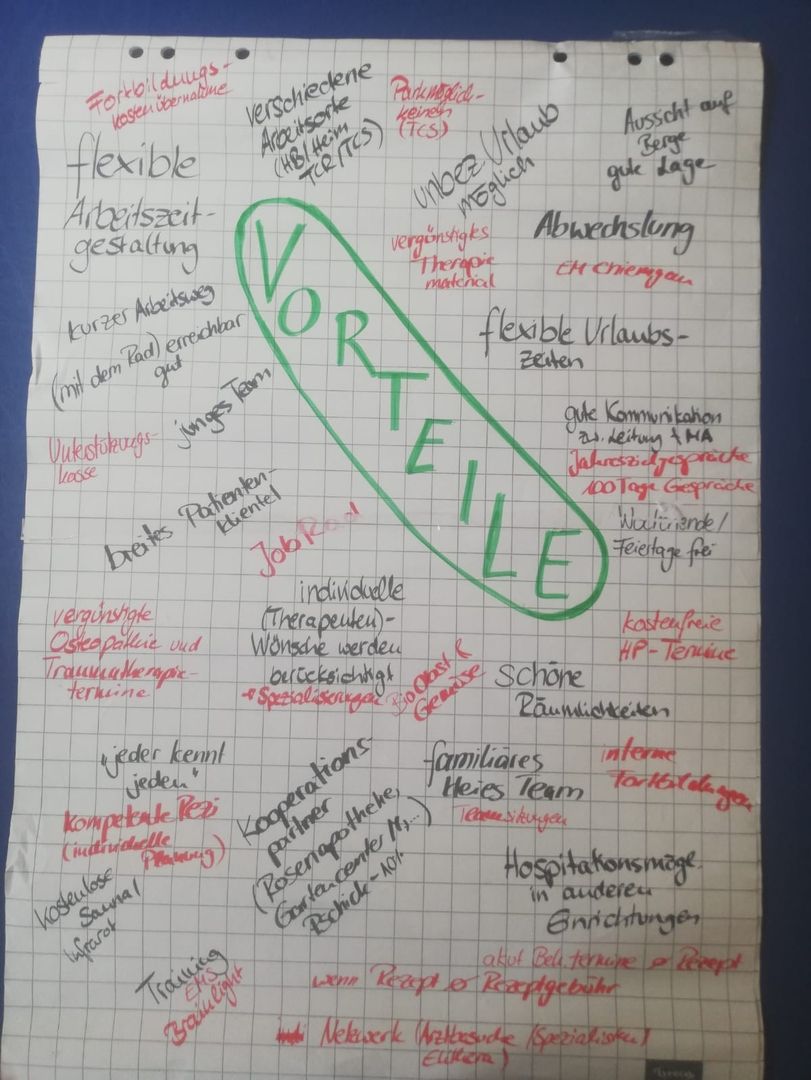 Fortbildungs-
kostenübernahme
verschiedene
Arbeitsorte
(HB/Heim
TCR/TCS)
Parkmöglich-
keiten
(TCS)
unbez. Urlaub
möglich
Aussicht auf
Berge
gute Lage
flexible
Arbeitszeit-
gestaltung
vergünstigtes
Therapie
material
Abwechslung
EM Chiemgau
VORTEILE
kurzer Arbeitsweg
(mit dem Rad) erreichbar
gut
flexible Urlaubs-
zeiten
junges Team
gute Kommunikation
zw. Leitung + MA
Jahreszielgespräche
100 Tage Gespräche
Unterstützungs-
kasse
breites Patienten-
klientel
Job Rad
Feiertage frei
individuelle
(Therapeuten)-
Wünsche werden
berücksichtigt
+ Spezialisierungen
vergünstigte
Osteopathie und
Traumatherapie-
termine
kostenfreie
HP-Termine
Bio Obst &
Gemüse
schöne
Räumlichkeiten
"jeder kennt
jeden"
kompetente Rezi
(individuelle
Planung)
Kooperations-
partner
(Rosenapotheke,
Gartencenter
-10%
familiäres
Team
Teamsitzungen
interne
Fortbildungen
kostenlose
Sauna/
Infrarot
Hospitationsmögl.
in anderen
Einrichtungen
Training
EMS
Brainlight
akut Beh. termine ø Rezept
wenn Rezept ø Rezeptgebühr
Netzwerk (Arztbesuche/Spezialisten/